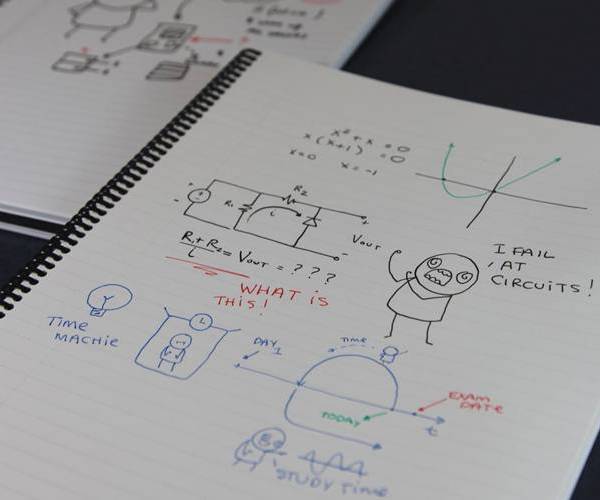 x² + x = 0
x(x+1) = 0
x=0 x=-1
R2
+
-
R1
i
+
-
Vout
R1+R2/i = Vout = ???
WHAT IS
THIS!
I FAIL
AT
CIRCUITS!
TIME
MACHIE
DAY 1
TIME
TODAY
EXAM
DATE
t
STUDY TIME